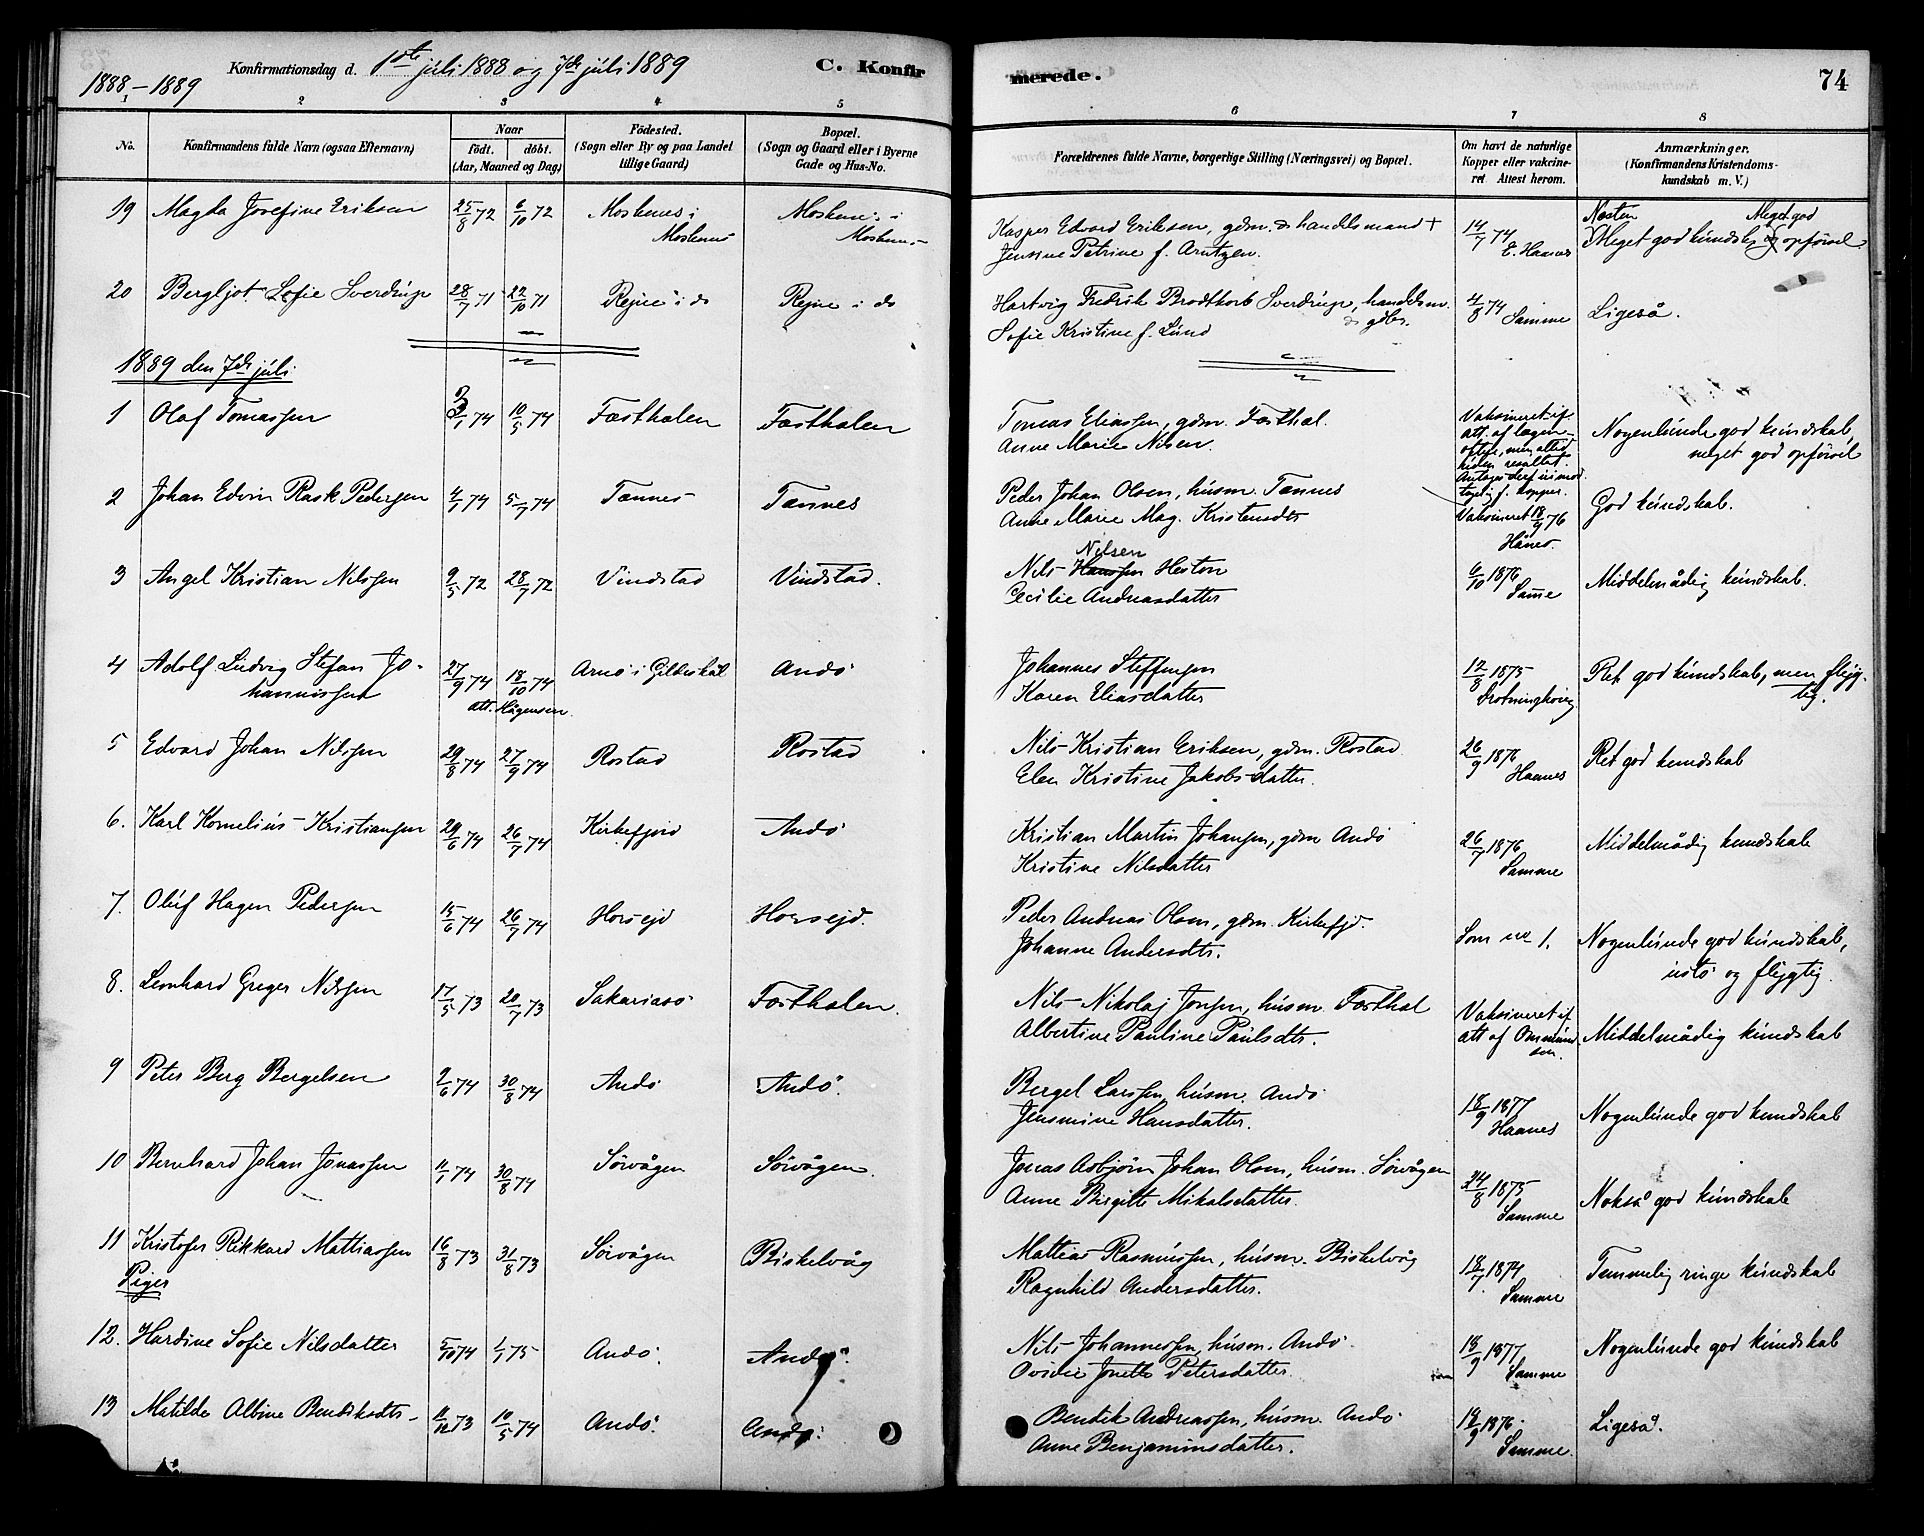 1888-1889
Konfirmationsdag d. 1ste júli 1888 og 7de júli 1889
C. Konfir
merede.
74
1 2 3 4 5 6 7 8
No.
Konfirmandens fulde Navn (ogsaa Efternavn)
Naar
födt. döbt.
(Aar, Maaned og Dag)
Födested.
(Sogn eller By og paa Landet
tillige Gaard)
Bopæl.
(Sogn og Gaard eller i Byerne
Gade og Hus-No.
Forældrenes fulde Navne, borgerlige Stilling (Næringsvei) og Bopæl.
Om havt de naturlige
Kopper eller vakcine-
ret Attest herom.
Anmærkninger.
(Konfirmandens Kristendoms-
kundskab m. V.)
19 Magda Josefine Eriksen 25/8 72 6/10 72 Moskenes i Moskenes Moskenes i Moskenes
Kasper Edvard Eriksen, gdm. & handelsmand +
Jensine Petrine f. Arntzen. 14/7 74 E. Haanes
Næsten Meget god
Meget god kúndsk. og opförsel
20 Bergljot Sofie Sverdrup 28/7 71 22/10 71 Rejne i do Rejne i do
Hartvig Fredrik Brodtkorb Sverdrup, handelsm. & gdbr.
Sofie Kristine f. Lúnd 4/8 74 Samme Ligeså.
1889 den 7de júli
1 Olaf Tomassen 3/1 74 10/5 74 Fæsthalen Fæsthalen
Tomas Eliassen, gdm. Fæsthal.
Anne Marie Nilsen.
Vaksineret if.
att. af lægen
oftere, men altid
uden resultat.
Antages derf. uimod-
tagelig f. kopper.
Nogenlúnde god kúndskab,
meget god opförsel
2 Johan Edvin Rask Pedersen 4/1 74 5/7 74 Tennes Tennes
Peder Johan Olsen, húsm. Tennes
Anne Marie Mag. Kristensdtr
Vaksineret 18/9 76
Hånes.
God kúndskab.
3 Angel Kristian Nilssen 9/5 72 28/7 72 Vindstad Vindstad.
Nilsen
Nils Hanssen Heston
Cecilie Andreasdatter 6/10 1876 Samme Middelmådig kúndskab.
4 Adolf Lúdvig Stefan Jo-
hannessen 27/9 74 18/10 74 Arnö i Gildeskål Andö
att. Mågensen.
Johannes Steffensen
Karen Eliasdatter 12/8 1875 Drotninghavig
Ret god kúndskab, men flyg-
tig.
5 Edvard Johan Nilssen 29/8 74 27/9 74 Rostad Rostad
Nils Kristian Eriksen, gdm. Rostad
Elen Kristine Jakobsdatter. 26/9 1876 Haanes Ret god kúndskab
6. Karl Kornelius Kristiansen 29/6 74 26/7 74 Kirkefjord Andö
Kristian Martin Johansen, gdm Andö
Kristine Nilsdatter 26/7 1876 Samme Middelmådig kúndskab
7. Olúf Hagen Pedersen 15/6 74 26/7 74 Horsejd Horsejd.
Peder Andreas Olsen, gdm. Kirkefjd.
Johanne Andersdtr. Som no 1.
Nogenlúnde god kúndskab,
ustö og flygtig.
8. Leonhard Greger Nilssen 17/5 73 20/7 73 Sakariasö Fæsthalen.
Nils Nikolaj Jonsen, húsm. Fæsthal
Albertine Pauline Paúlsdtr.
Vaksineret if.
att af Ommúnd-
sen.
Middelmådig kúndskab
9 Peter Berg Bergelsen 2/6 74 30/8 74 Andö Andö.
Bergel Larssen, húsm. Andö
Jensmine Hansdatter. 18/9 1877 Haanes Nogenlúnde god kúndskab
10 Bernhard Johan Jonassen 11/7 74 30/8 74 Sörvågen Sörvågen.
Jonas Asbjörn Johan Olsen, húsm. Sörvågen
Anne Birgitte Mikalsdatter. 24/8 1875 Samme Nokså god kúndskab
11 Kristofer Rikkard Mattiassen 16/8 73 31/8 73 Sörvågen Biskelvåg
Mattias Rasmússen, húsm. Biskelvåg
Ragnhild Andersdatter. 18/7 1874 Samme Temmelig ringe kúndskab
Piger
12. Hardine Sofie Nilsdatter 5/10 74 1/7 75 Andö. Andö.
Nils Johannessen, húsm. Andö
Ovidie Jonette Petersdatter. 18/9 1877 Samme Nogenlúnde god kúndskab
13 Matilde Albine Bendiksdtr. 11/12 73 10/5 74 Andö. Andö.
Bendik Andreassen, húsm. Andö
Anne Benjaminsdatter. 19/9 1876 Samme. Ligeså.